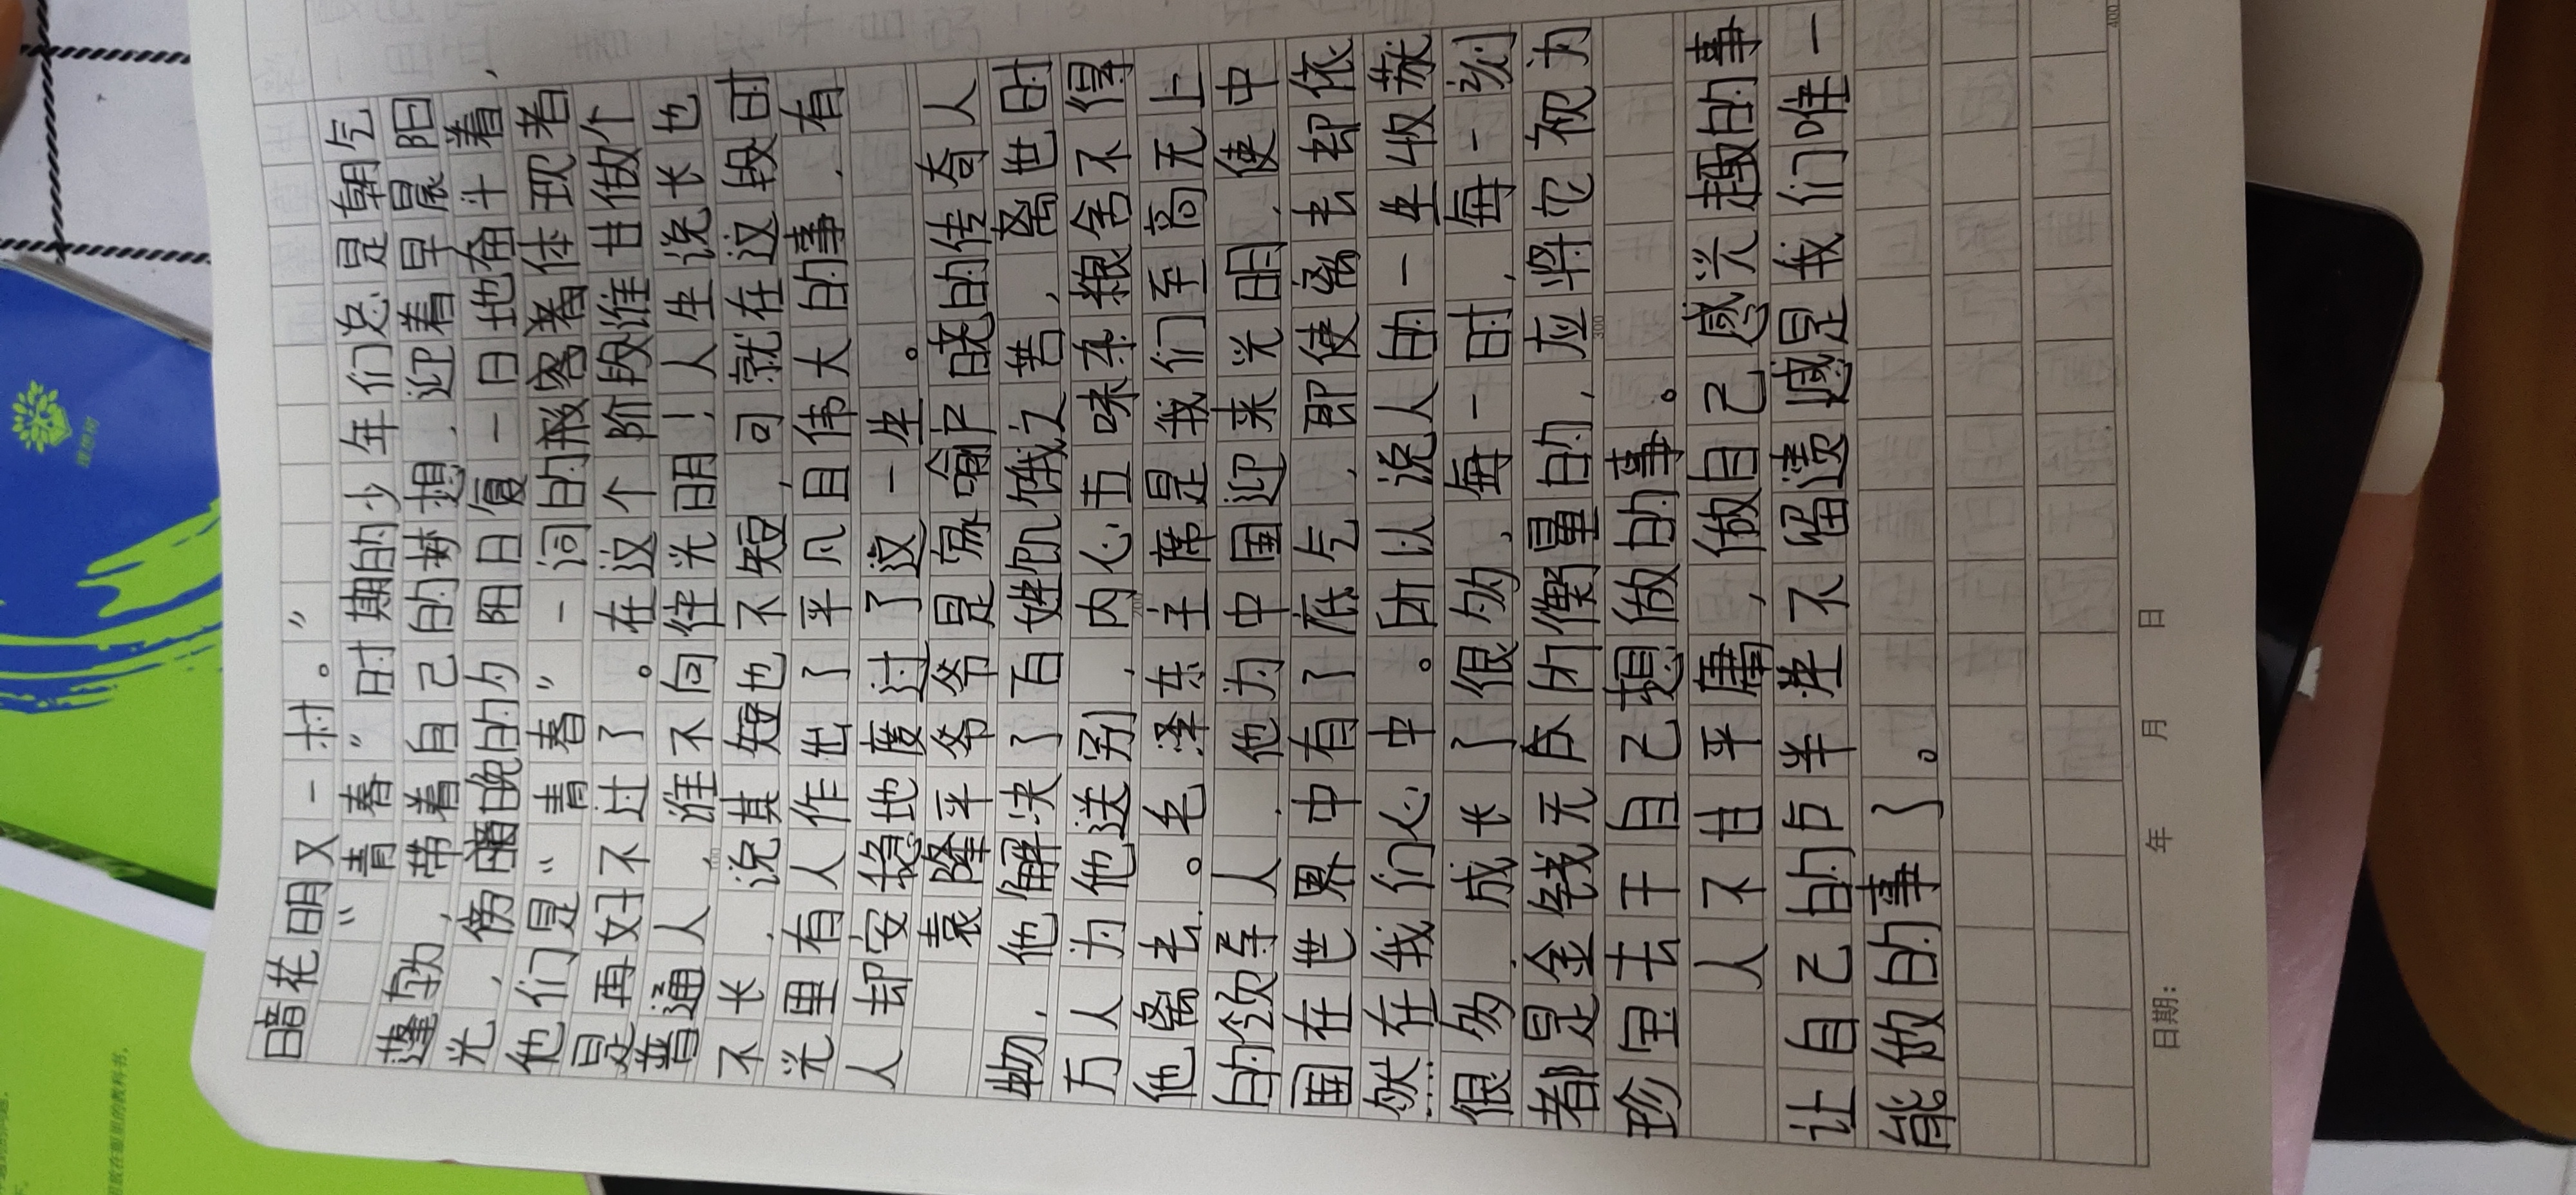 暗花明又一村。”
“青春”时期的少年们总是朝气
蓬勃，带着自己的梦想，迎着早晨阳
光，傍暗晚的夕阳日复一日地奋斗着，
他们是“青春”一词的报客者体现者
是再好不过了。在这个阶段谁甘做个
普通人，谁不向往光明！人生说长也
不长，说其短也不短，可就在这段时
光里有人作出了平凡且伟大的事，有
人却安稳地度过了这一生。
袁隆平爷爷是家喻户晓的传奇人
物，他解决了百姓饥饿之苦，离世时
万人为他送别，内心五味杂粮舍不得
他离去。毛泽东主席是我们至高无上
的领导人，他为中国迎来光明，使中
国在世界中有了底气，即使离去却依
然在我们心中。因以说人的一生收获
很多，成长了很多，每一时，每一刻
都是金钱无法的衡量的，应将它视为
珍宝去干自己想做的事。
人不甘平庸，做自己感兴趣的事
让自己的后半生不留遗憾是我们唯一
能做的事了。
日期： 年 月 日
100
200
300
400
理想树